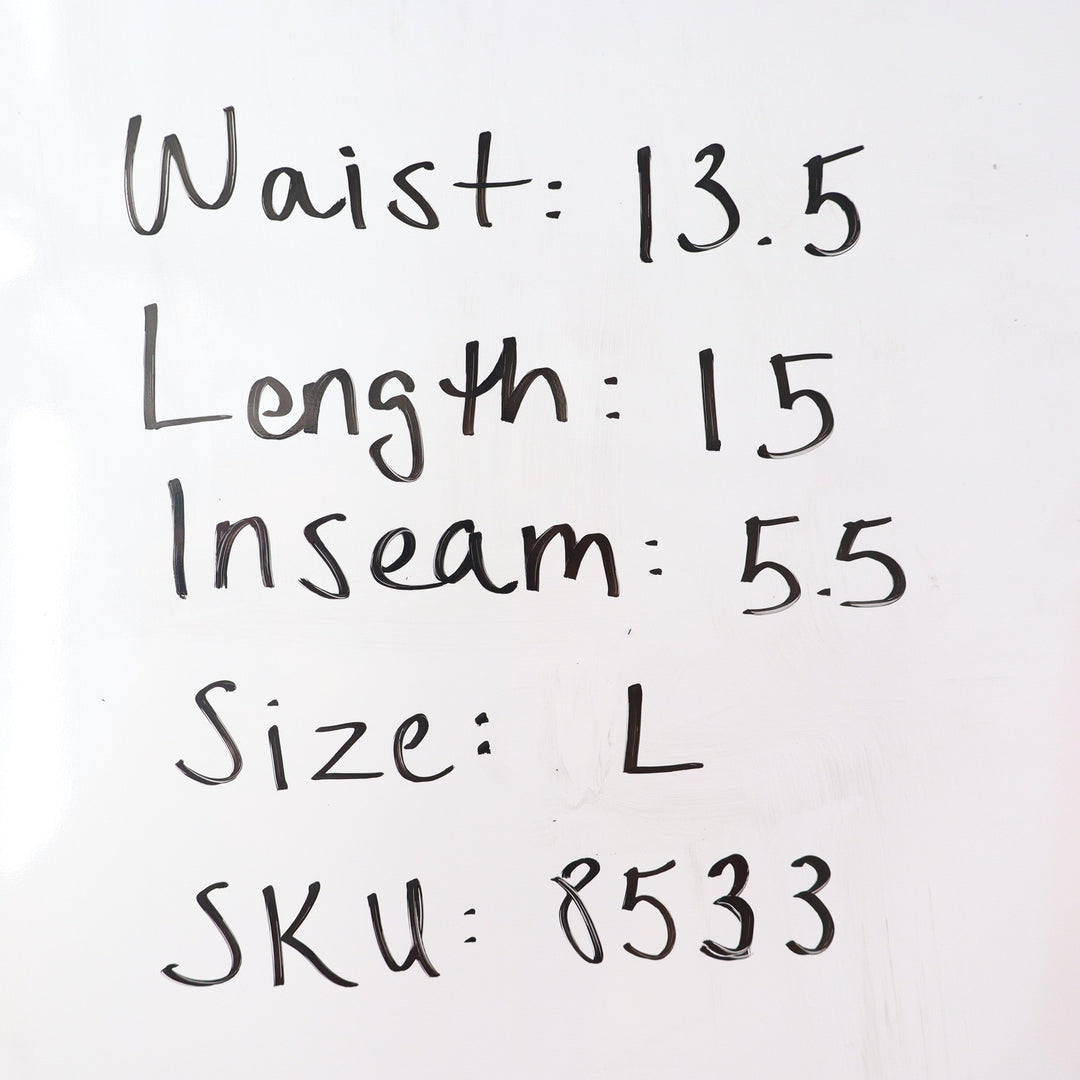 Waist: 13.5
Length: 15
Inseam: 5.5
Size: L
SKU: 8533